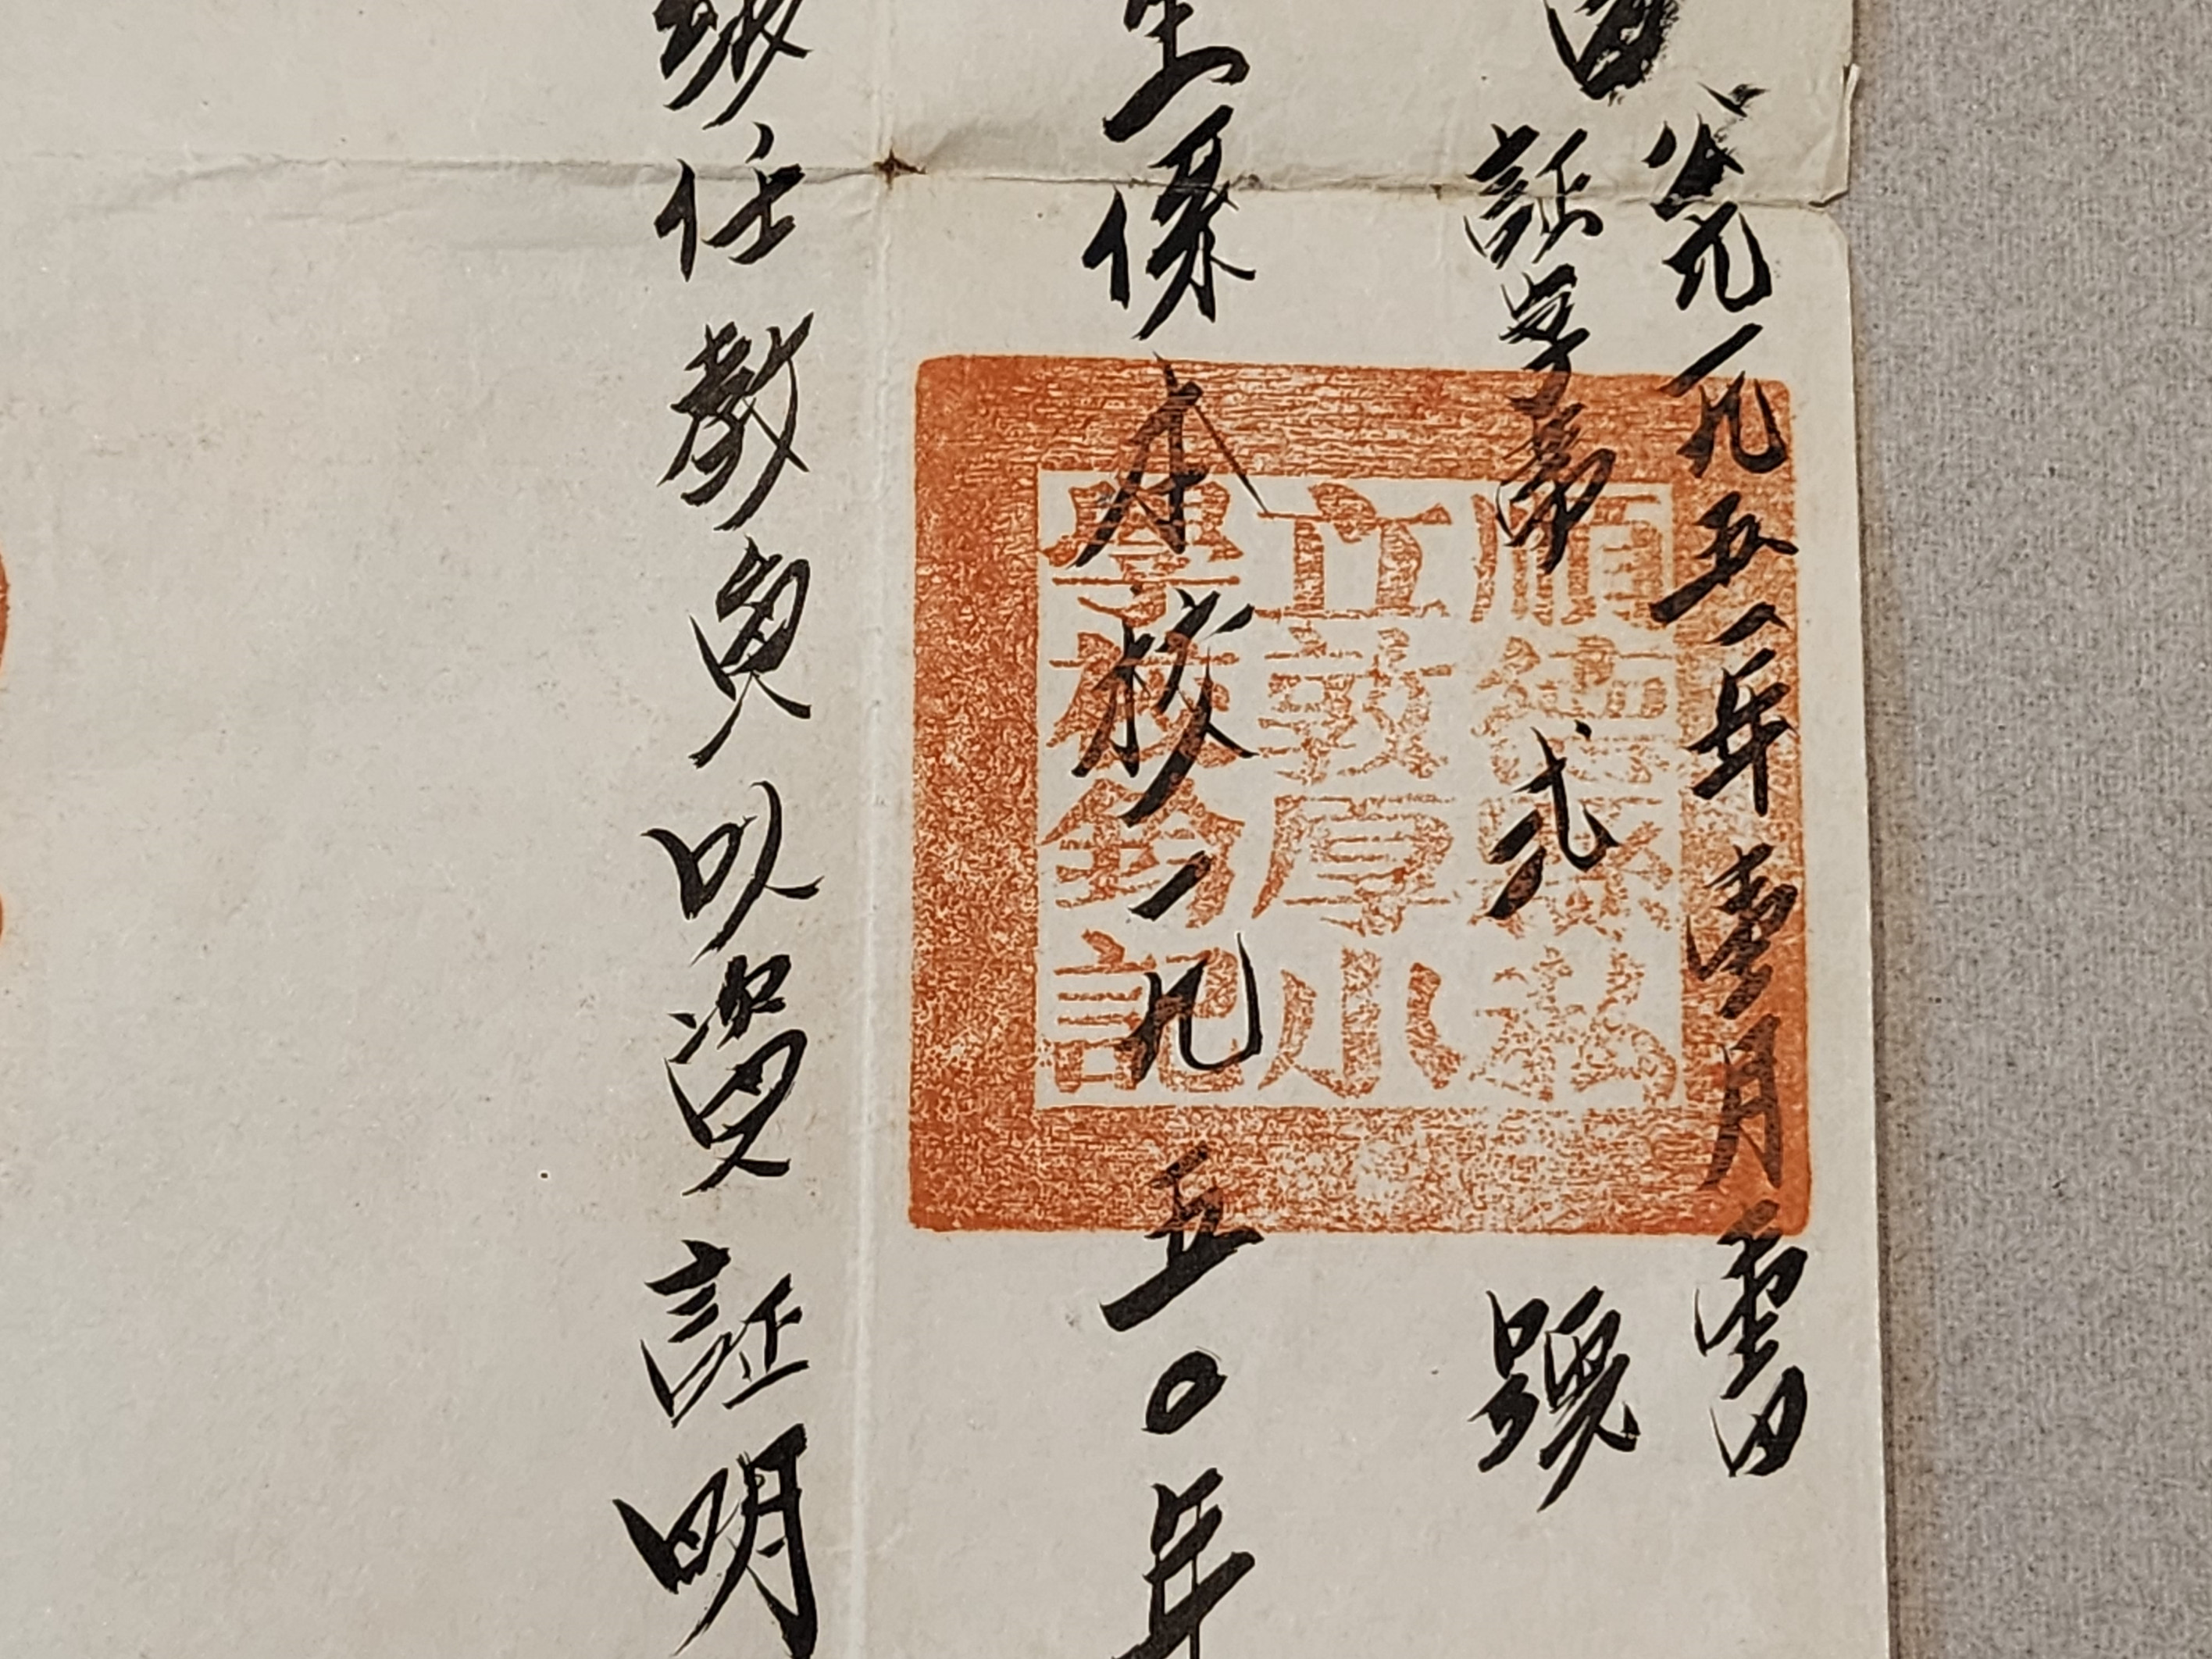 公元一九五一年壹月壹日
証字第弍號
生係本校一九五〇年
級任教員以資証明
順德縣私
立敦厚小
學校鈐記